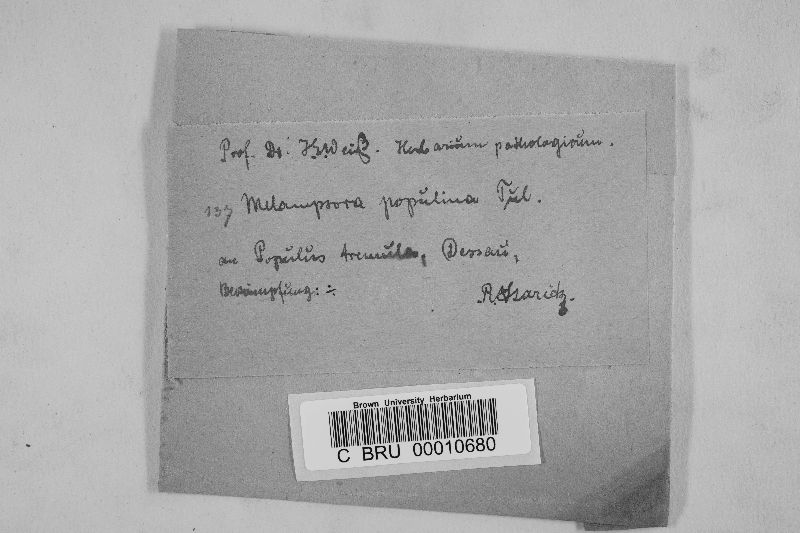 Prof. Dr. J. E. Weiß. Herbarium pathologicum.
137 Melampsora populina Tul.
an Populus tremula, Dessau,
Bekämpfung: ÷ R. Staritz.
Brown University Herbarium
C BRU 00010680